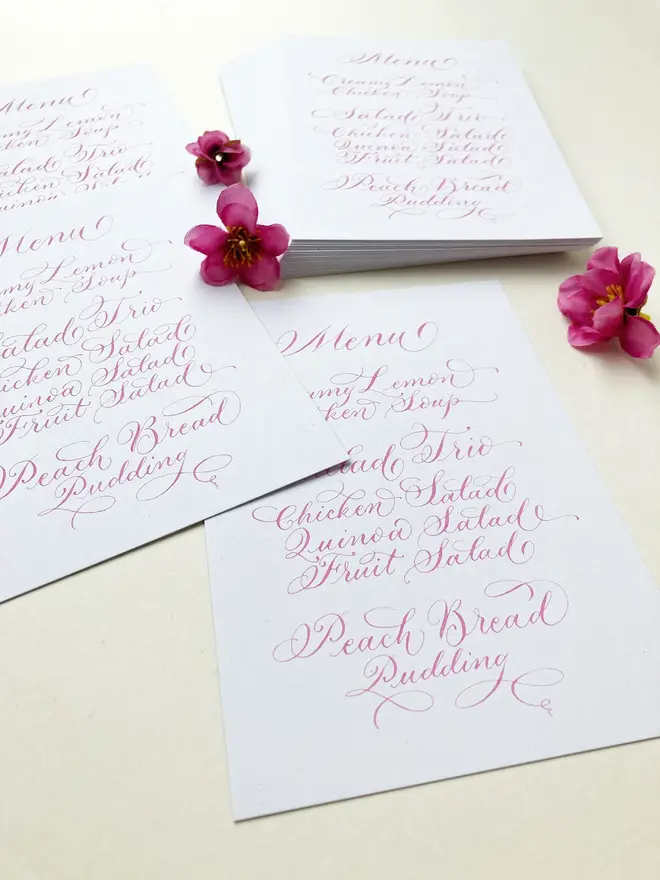 Menu
my Lemon
Soup
Salad Trio
Chicken Salad
Quinoa
Menu
Creamy Lemon
Chicken Soup
Salad Trio
Chicken Salad
Quinoa Salad
Fruit Salad
Peach Bread
Pudding
Menu
my Lemon
cken Soup
alad Trio
icken Salad
uinoa Salad
Fruit Salad
Peach Bread
Pudding
Menu
amy Lemon
ken Soup
lad Trio
Chicken Salad
Quinoa Salad
Fruit Salad
Peach Bread
Pudding